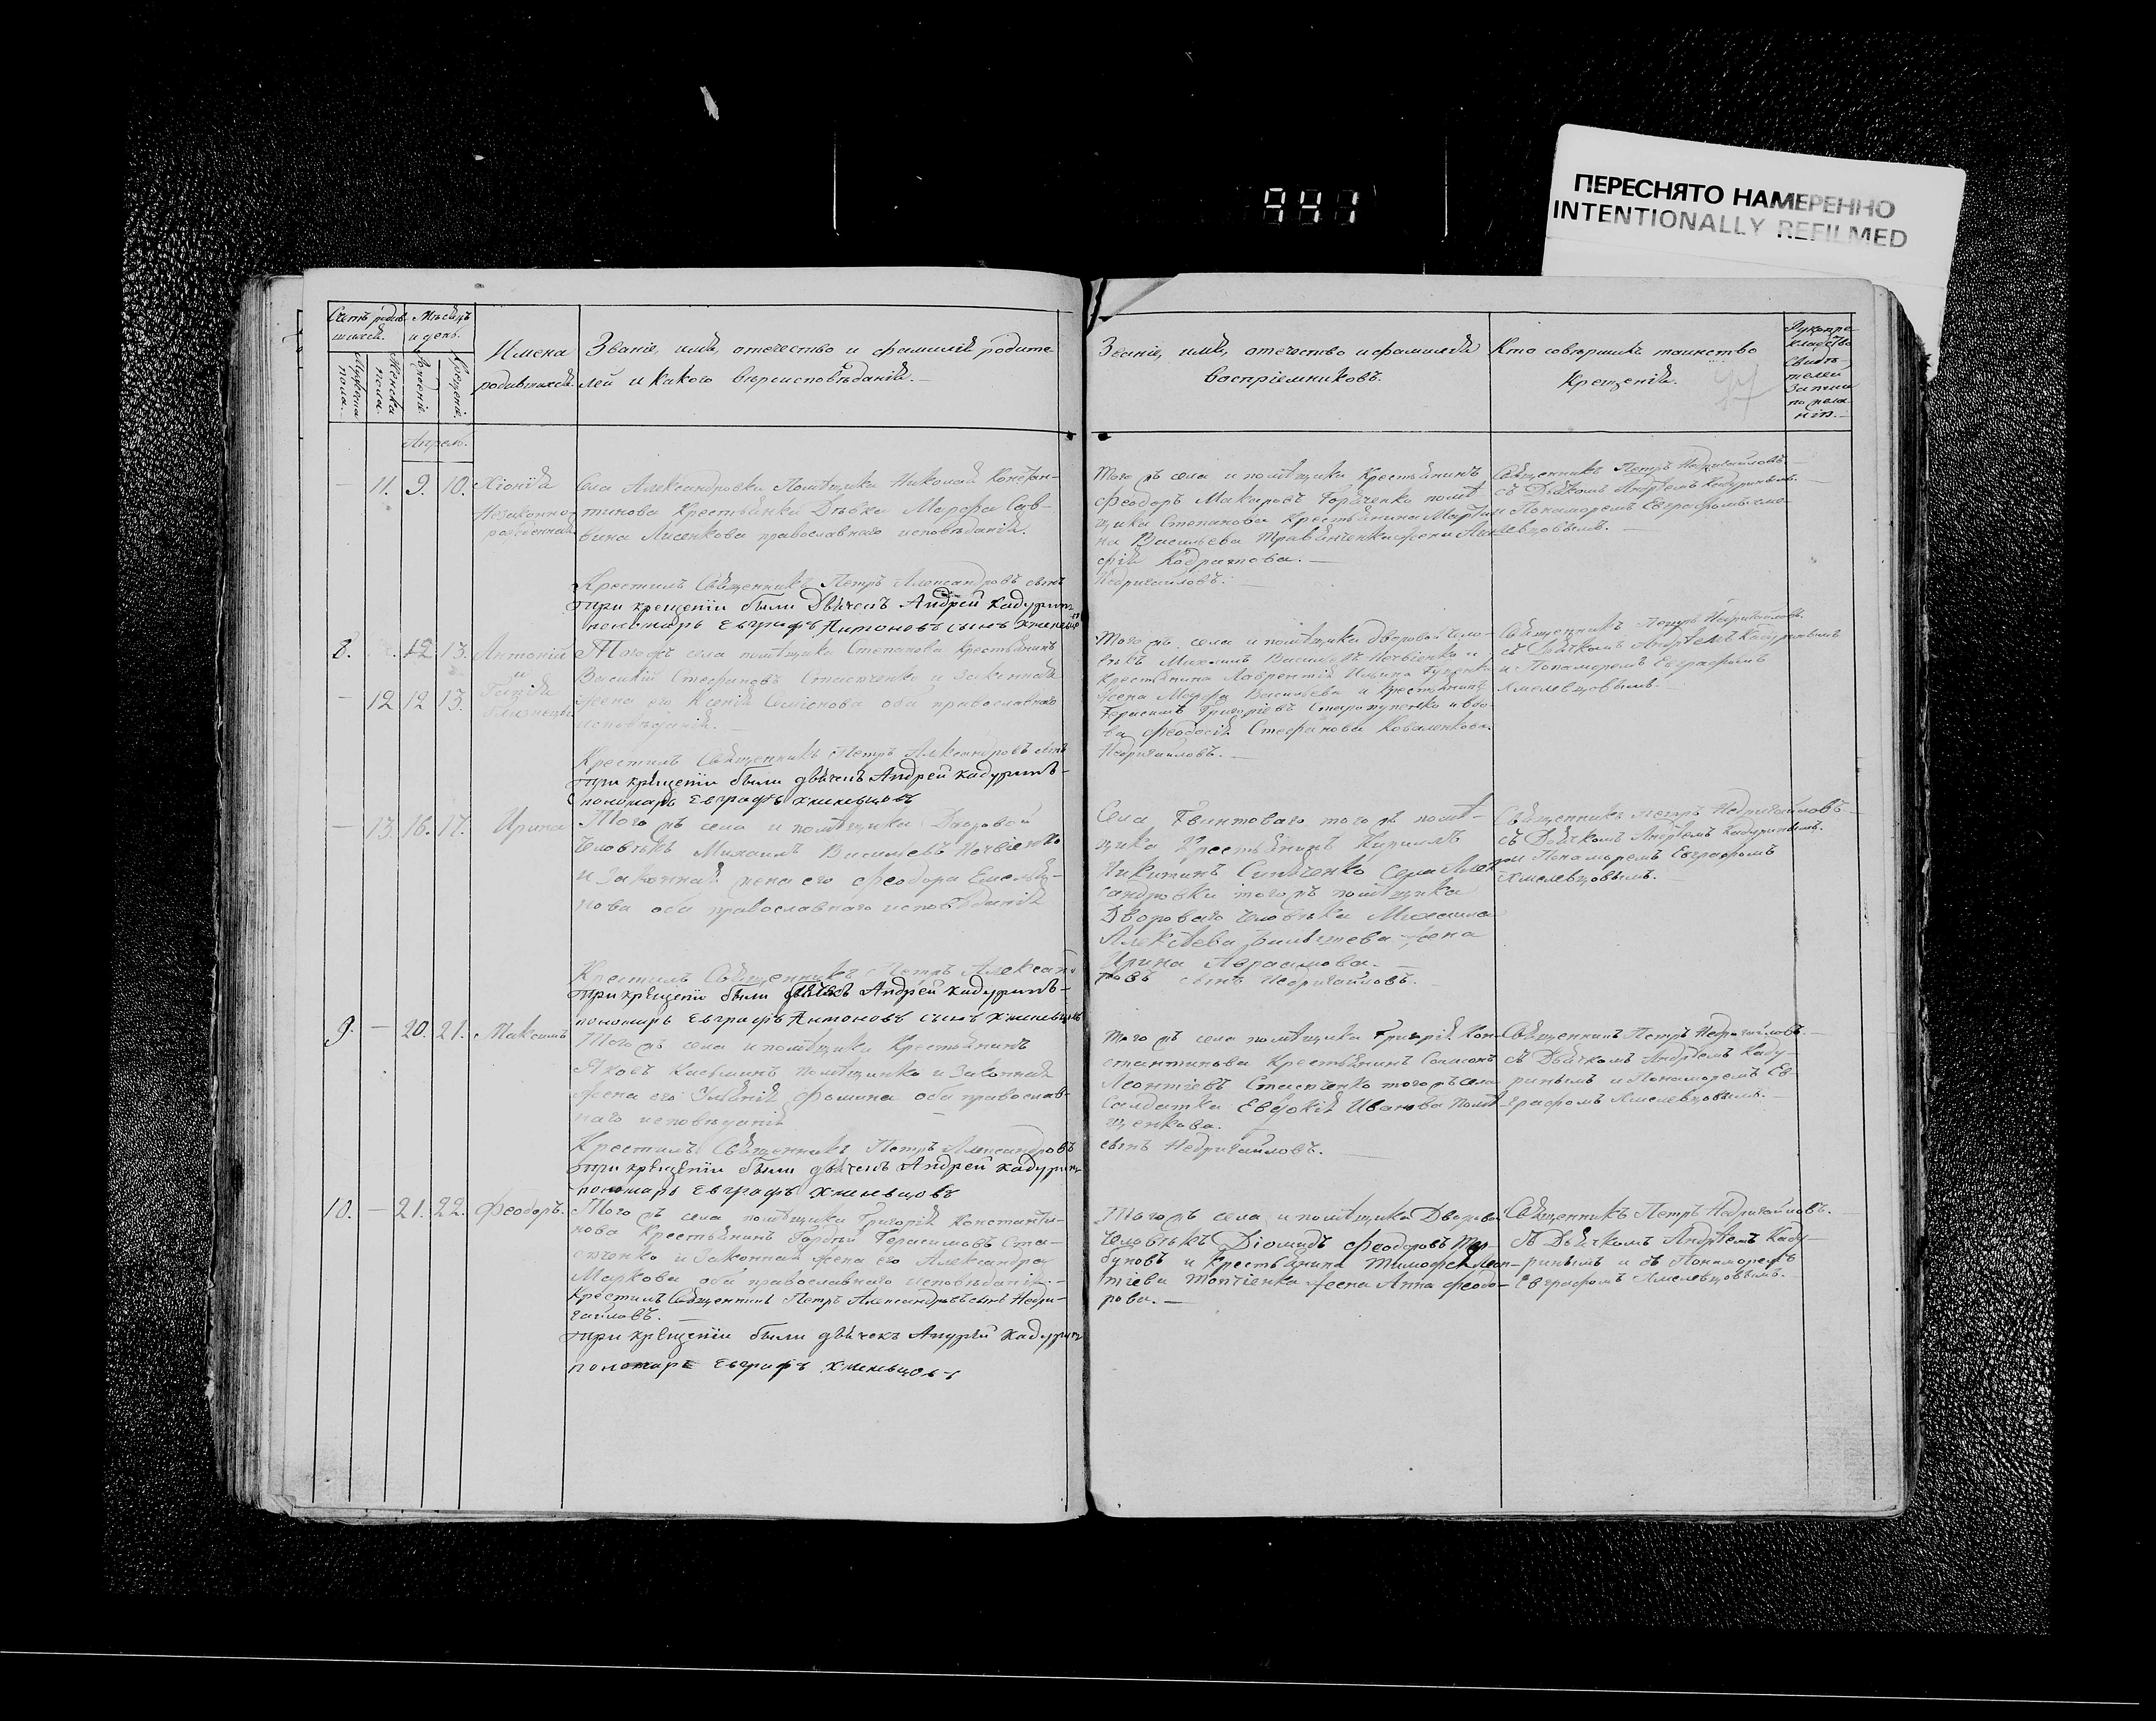 941
ПЕРЕСНЯТО НАМЕРЕННО
INTENTIONALLY REFILMED
Счетъ родив-
шихся.
Мѣсяцъ
и день.
Мужеска
пола.
Женска
пола.
Рожденіе.
Крещеніе.
Имена
родившихся.
Званіе, имя, отечество и фамилія родите-
лей и какого вѣроисповѣданія.
Званіе, имя, отечество и фамилія
воспріемниковъ.
Кто совершилъ таинство
Крещенія.
77
Рукопри-
кладство
свидѣ-
телей
записи
по жела-
нію.
Апрель.
11. 9. 10. Хіонія
Незаконно-
рожденная
Села Александровки Помѣщика Николая Констан-
тинова Крестьянка Дѣвка Марфа Сав-
вина Лисенкова православнаго исповѣданія.
Крестилъ Священникъ Петръ Александровъ сынъ
при крещеніи были Дьячекъ Андрей Кадуринъ
пономарь Евграфъ Антоновъ сынъ Хмелевцовъ
Того жъ села и помѣщика Крестьянинъ
Феодоръ Макаровъ помѣ-
щика Степанова Крестьянина Марти-
на Васильева жена
Недригайловъ.
Священникъ Петръ Недригайловъ
съ Дьячкомъ Андреемъ Кадуринымъ
и Понамаремъ Евграфомъ Хме-
левцовымъ.
8. 12. 13. Антоній
и
12 12 13.
близнецы
Того жъ села помѣщика Степанова Крестьянинъ
Василій Стефановъ Стасенко и Законная
жена его Ксенія Семіонова оба православнаго
исповѣданія.
Крестилъ Священникъ Петръ Александровъ сынъ
при крещеніи были дьячекъ Андрей Кадуринъ
пономарь Евграфъ Хмелевцовъ
Того жъ села и помѣщика дворовой чело-
вѣкъ Михаилъ Васильевъ и
Крестьянина Лаврентія Ильина
жена Марфа Васильева и Крестьянинъ
Герасимъ Григоріевъ и вдо-
ва Феодосія Стефанова Коваленкова.
Недригайловъ.
Священникъ Петръ Недригайловъ
съ Дьячкомъ Андреемъ Кадуринымъ
и Понамаремъ Евграфомъ
Хмелевцовымъ.
13. 16. 17. Ирина
Того жъ села и помѣщика Дворовой
Человѣкъ Михаилъ Васильевъ
и Законная жена его Феодора Емелья-
нова оба православнаго исповѣданія
Крестилъ Священникъ Петръ Алексан
при крещеніи были дьячекъ Андрей Кадуринъ
пономарь Евграфъ Антоновъ сынъ Хмелевцовъ
Села того жъ помѣ-
щика Крестьянинъ Кириллъ
Никитинъ Села Алек
сандровки того жъ помѣщика
Двороваго человѣка Михаила
Алексѣева жена
Ирина
ровъ сынъ Недригайловъ.
Священникъ Петръ Недригайловъ
съ Дьячкомъ Андреемъ Кадуринымъ
и Понамаремъ Евграфомъ
Хмелевцовымъ.
9. 20. 21. Максимъ
Того жъ села и помѣщика Крестьянинъ
Яковъ Касьминъ и Законная
жена его Ульянія Фомина оба православ-
наго исповѣданія
Крестилъ Священникъ Петръ Александровъ
при крещеніи были дьячекъ Андрей Кадуринъ
пономарь Евграфъ Хмелевцовъ
Того жъ села помѣщика Григорія Кон-
стантинова Крестьянинъ
Леонтіевъ Стасенко того жъ села
Салдатка Евдокія Иванова Помѣ-
щенкова.
сынъ Недригайловъ.
Священникъ Петръ Недригайловъ
съ Дьячкомъ Андреемъ Каду-
ринымъ и Понамаремъ Ев-
графомъ Хмелевцовымъ.
10. 21. 22. Феодоръ.
Того жъ села помѣщика Григорія Константи-
нова Крестьянинъ Гордѣй Герасимовъ Ста-
сенко и Законная жена его Александра
Маркова оба православнаго исповѣданія.
Крестилъ Священникъ Петръ Александровъ сынъ Недри-
гайловъ.
при крещеніи были дьячекъ Андрей Кадуринъ
пономарь Евграфъ Хмелевцовъ
Того жъ села и помѣщика Дворовой
Человѣкъ Діомидъ Феодоровъ
и Крестьянина Тимофея Леон-
тіева жена Анна Феодо-
рова.
Священникъ Петръ Недригайловъ.
съ Дьячкомъ Андреемъ Каду-
ринымъ и съ Понамаремъ
Евграфомъ Хмелевцовымъ.